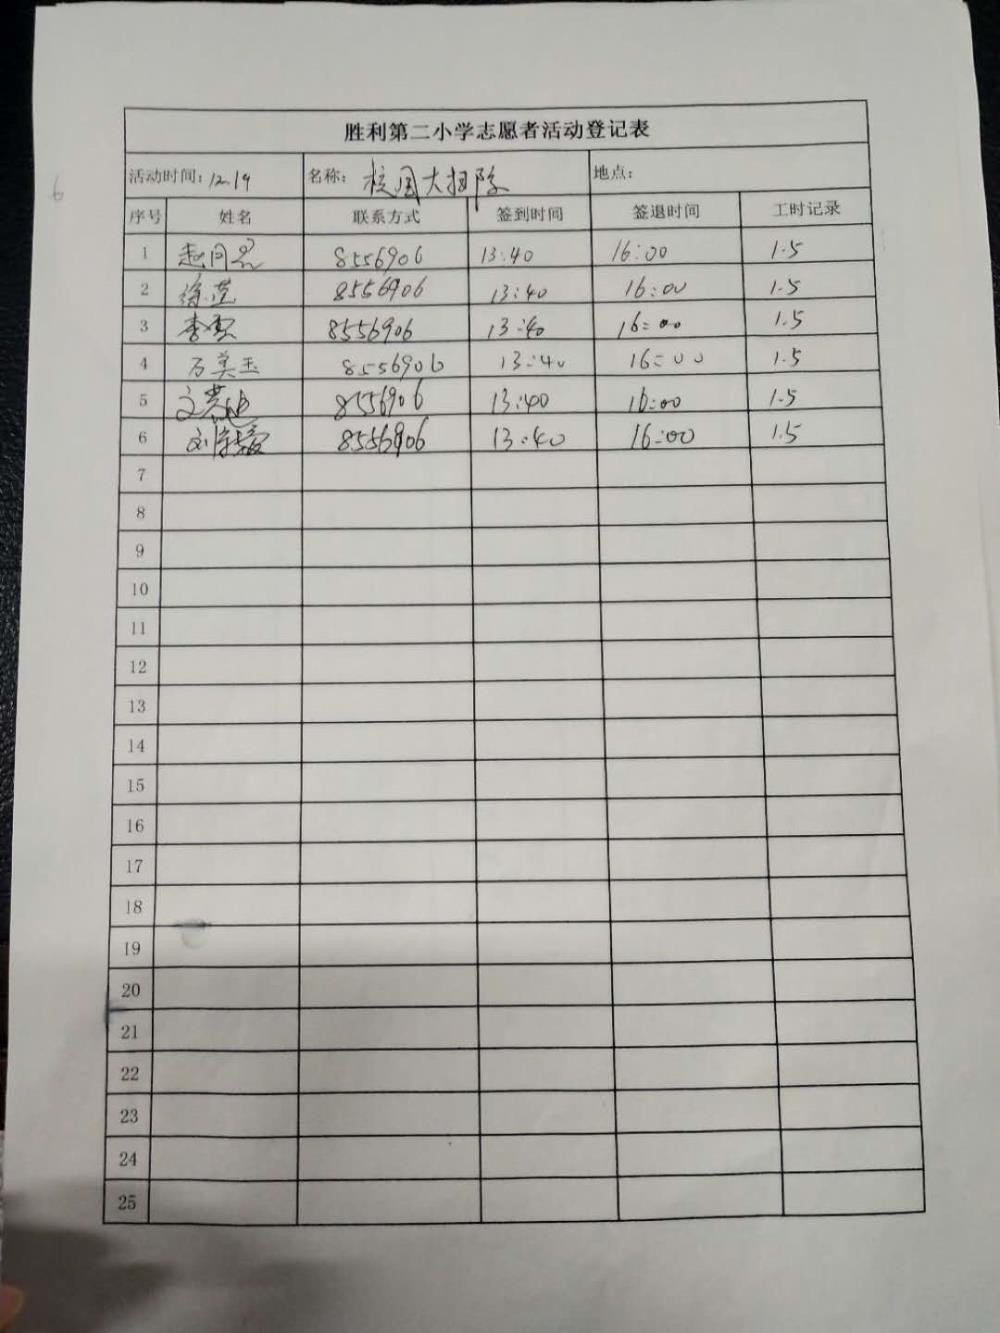 胜利第二小学志愿者活动登记表
活动时间：12.19 名称：校园大扫除 地点：
序号 姓名 联系方式 签到时间 签退时间 工时记录
1 8556906 13:40 16:00 1.5
2 徐莹 8556906 13:40 16:00 1.5
3 8556906 13:40 16:00 1.5
4 万美玉 8556906 13:40 16:00 1.5
5 8556906 13:40 16:00 1.5
6 8556906 13:40 16:00 1.5
7
8
9
10
11
12
13
14
15
16
17
18
19
20
21
22
23
24
25